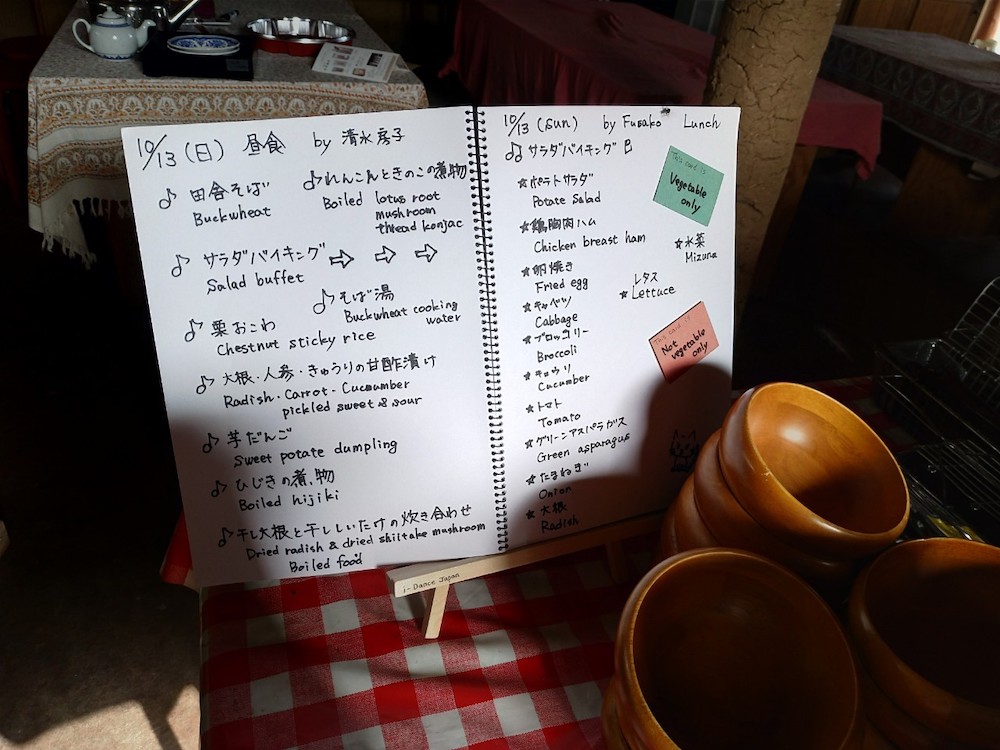 10/13 (日) 昼食 by 清水房子
♪ 田舎そば
Buckwheat
♪ れんこんときのこの煮物
Boiled lotus root
mushroom
thread konjac
♪ サラダバイキング ⇨ ⇨ ⇨
Salad buffet
♪ そば湯
Buckwheat cooking
water
♪ 栗おこわ
Chestnut sticky rice
♪ 大根・人参・きゅうりの甘酢漬け
Radish・Carrot・Cucumber
pickled sweet & sour
♪ 芋だんご
Sweet potato dumpling
♪ ひじきの煮物
Boiled hijiki
♪ 干し大根と干ししいたけの炊き合わせ
Dried radish & dried shiitake mushroom
Boiled food
10/13 (Sun) by Fusako Lunch
♫ サラダバイキング
★ ポテトサラダ
Potate Salad
★ 鶏胸肉ハム
Chicken breast ham
★ 卵焼き
Fried egg
★ キャベツ
Cabbage
★ ブロッコリー
Broccoli
★ キュウリ
Cucumber
★ トマト
Tomato
★ グリーンアスパラガス
Green asparagus
★ たまねぎ
Onion
★ 大根
Radish
This card is
Vegetable
only
★ 水菜
Mizuna
レタス
★ Lettuce
This card is
Not vegetable
only
i-Dance Japan